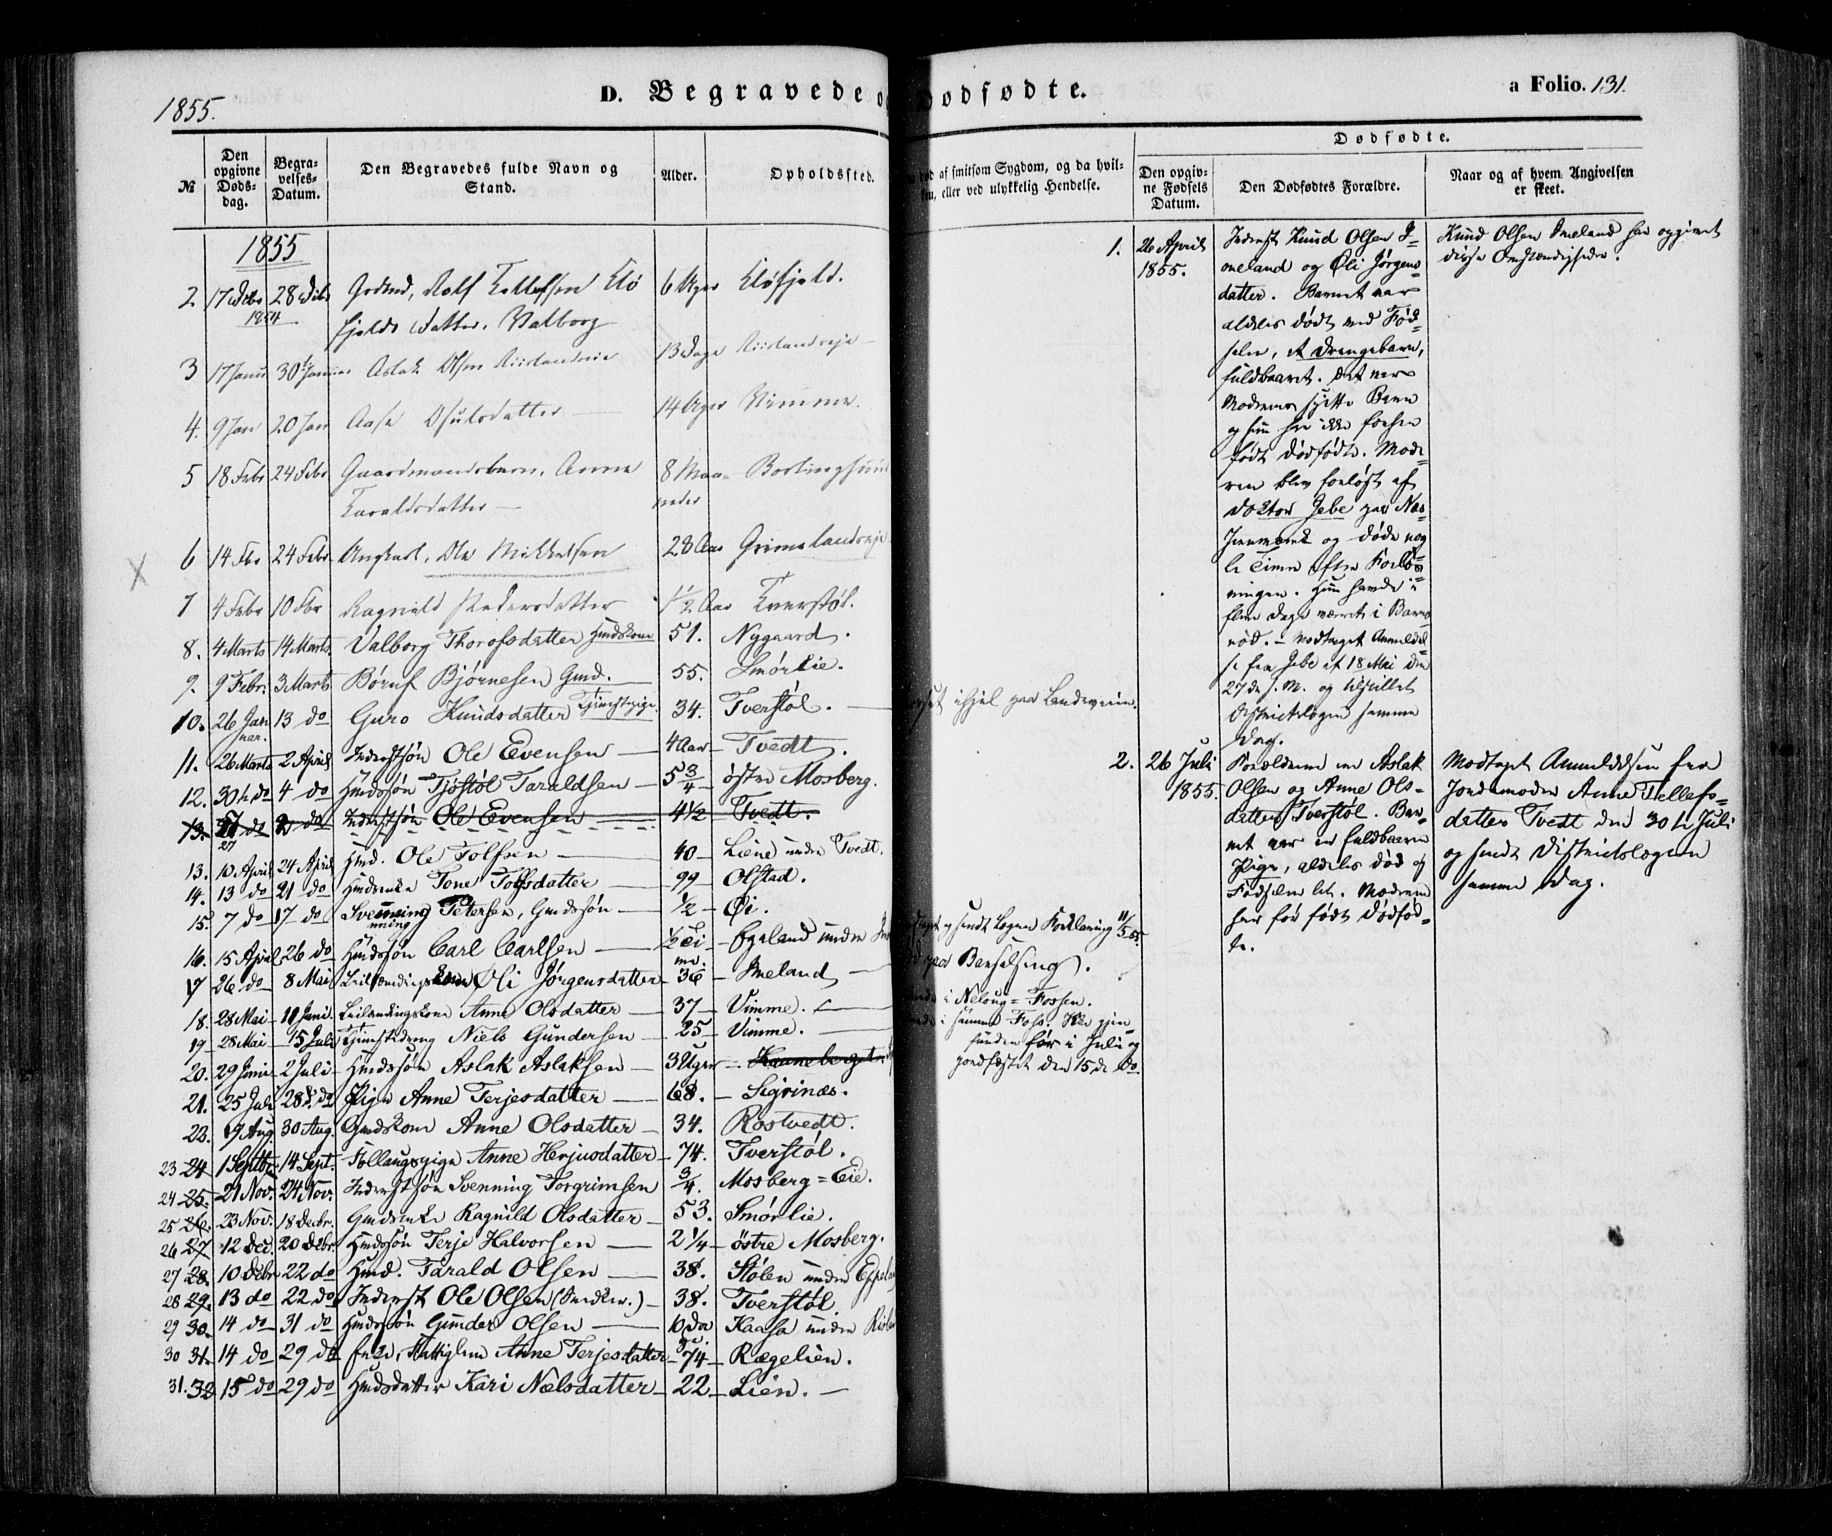 1855.
D. Begravede o
Dødfødte.
a Folio. 131.
№
Den opgivne Døds-dag.
Begra-velses-Datum.
Den Begravedes fulde Navn og Stand.
Alder.
Opholdssted.
død af smitsom Sygdom, og da hvil-
ken, eller ved ulykkelig Hendelse.
Dødfødte.
Den opgiv-ne Fødsels Datum.
Den Dødfødtes Forældre.
Naar og af hvem Angivelsen er skeet.
1855
2. 17 Debr 1854 28 Debr Rolf Tellefsen Klø 6 Uger Kløfjeld.
fjelds Datter, Valborg
3 17 Janu 30 Aslak Olsen Riislandseie 13 Dage Riislandseie
4. 9 Jan 20 Jan Aase Osulsdatter 14 Uger Vimme.
5 18 Febr 24 Febr Gaardmandsbarn, Anne 8 Maa-
Taraldsdatter neder
6 14 Fbr 24 Febr Ungkarl, Ole Mikkelsen 28 Aar Grimelandseie
7 4 Febr 10 Fbr Ragnild Pedersdatter 1 1/2 Aar Tverstøl.
8. 4 Marts 14 Marts Valborg Thorofsdatter Hmdskone 51. Nygaard.
9. 9 Febr. 3 Marts Børuf Bjørnesen Gmd. 55. Smørlie.
10. 26 Jan uar. 13 do Guro Knudsdatter Tjenestepige. 34. Tverstøl.
ihjel paa Landeveien.
11. 26 Marts 2 April Inderstsøn Ole Evensen 4 Aar Tvedt.
12. 30te do 4 do Hmdssøn Tjøstøl Taraldsen 5 3/4 østre Mosberg.
13. 27 do 2 do Inderstsøn Ole Evensen 4 1/2 Tvedt.
13. 10 April 24 April Hmd. Ole Tolfsen 40 Liene under Tvedt.
14. 13 do 21 do Hmdsenke Tone Tolfsdatter 99 Olstad.
15. 7 do 17 do Svenning Petersen, Gmdssøn 1/2 Øi.
16. 15 April 26 do Hmdssøn Carl Carlsen 1/2 Ti me. Egeland under
og sendt Lægen Forklaring 11/5 55.
17 26 do 8 Mai Leilændingskone Oli Jørgensdatter 36 Imeland
Barselseng.
18. 28 Mai 1 Juni. Leilændingskone Anne Olsdatter 37 Vimme.
i Neloug=Fossen.
19 28 Mai 15 Juli Tjenestedreng Niels Gundersen 25 Vimme.
i samme Foss. Blev gjen-
funden før i Juli og
jordfæstet den 15de do
20. 29 Juni 2 Juli Hmdssøn Aslak Aslaksen 3 Uger Kanneberget
21. 25 Juli 28 do Pige Anne Terjesdatter 68. Sigrinæs.
22. 17 Aug. 30 Aug. Gmdskone Anne Olsdatter 34. Rostvedt.
23 24 1 Septbr. 14 Sept. Anne Herjusdatter 74. Tverstøl.
24 25. 21 Nov. 24 Nov. Inderstsøn Svenning Torgrimsen 3/4. Mosberg=Eie.
25 26. 23 Nov. 18 Decbr. Gmdsenke Ragnild Olsdatter 53. Smørlie.
26 27 12 Dec. 20 Debr. Hmdssøn Terje Halvorsen 2 1/4 østre Mosberg.
27 28. 10 Debr. 22 do Hmd. Tarald Olsen 38. Stølen under
28 29. 13 do 22 do Inderst Ole Olsen 38. Tverstøl.
29 30. 14 do 31 do Hmdssøn Gunder Olsen 10 Da ge. Kaasa under
30 31. 14 do 29 do Enke, Fattiglem Anne Terjesdatter 74 Rægelien.
31. 32 15 do 29 do Hmdsdatter Kari Nælsdatter 22 Lien.
1. 26 April 1855.
Inderst Knud Olsen I-
meland og Øli Jørgens-
datter. Barnet var
aldeles dødt ved Fød-
selen, et Drengebarn,
fuldbaaret. Det var
Modrens sjette Barn
og hun har ikke forhen
født dødfødte. Mode-
ren blev forløst af
Doktor Jebe paa Næs
Jernværk og døde nog-
le Timer efter Forløs-
ningen. Hun havde i
flere Dage været i Barns
nød. – Modtaget Anmeldel-
se fra Jebe af 18 Mai den
27de s. M. og tilstillet
Districtslægen samme
Dag.
Knud Olsen Imeland har opgivet
disse Omstændigheder.
2. 26 Juli 1855.
Forældrene ere Aslak
Olsen og Anne Ols-
datter Tverstøl. Bar-
net var en fuldbaaren
Pige, aldeles død og
Modren
har før født dødfød-
te.
Modtaget Anmeldelsen fra
Jordemoder Anne Tellefs-
datter Tvedt den 30te Juli
og sendt Districtslægen
samme Dag.